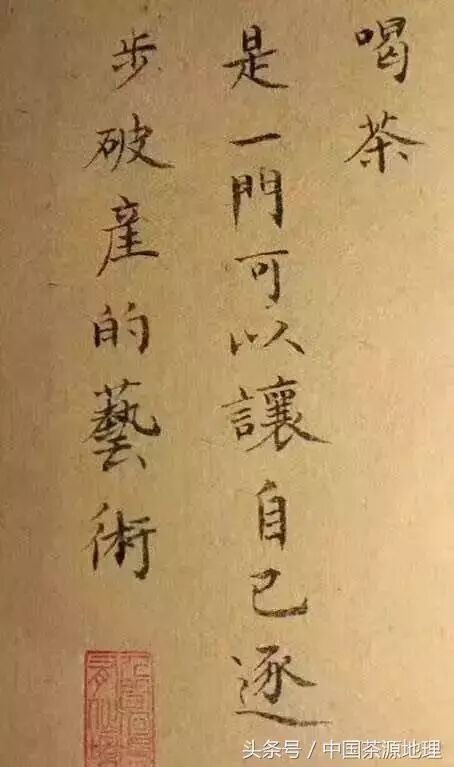 喝茶
是一門可以讓自己逐
步破産的藝術
头条号 / 中国茶源地理